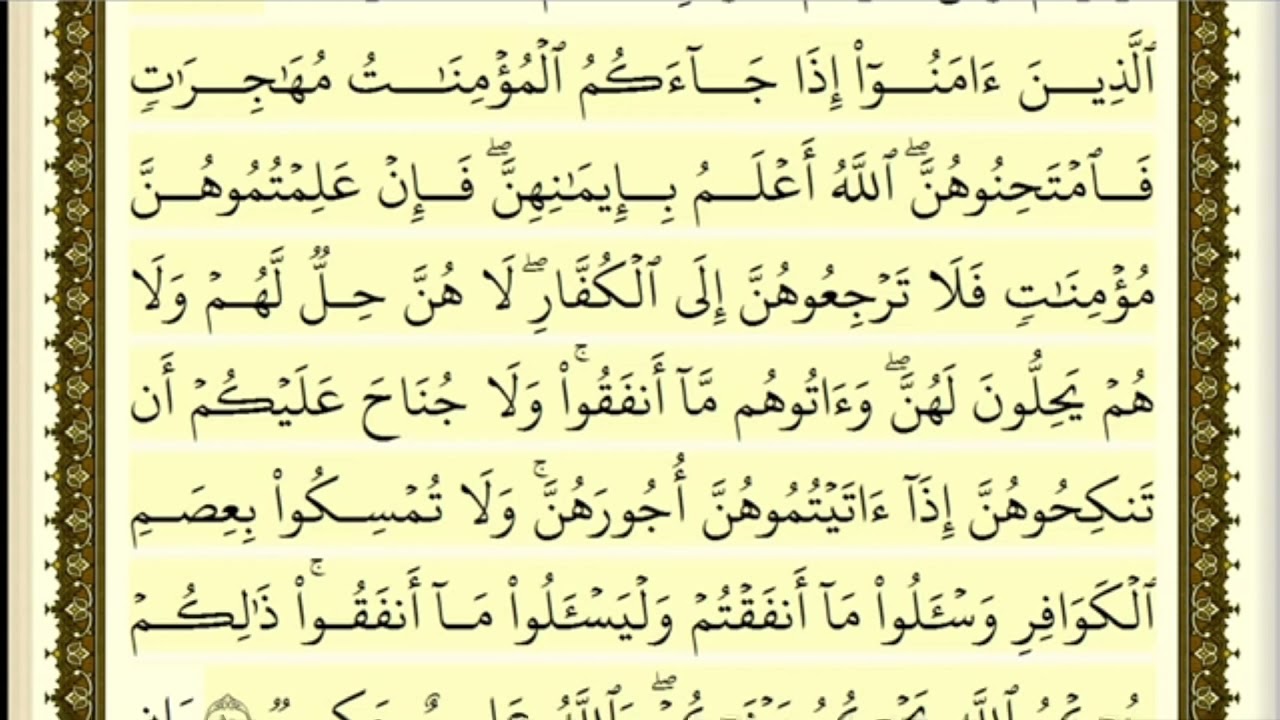 ٱلَّذِينَ ءَامَنُوٓا۟ إِذَا جَآءَكُمُ ٱلْمُؤْمِنَـٰتُ مُهَـٰجِرَٰتٍ
فَٱمْتَحِنُوهُنَّ ۖ ٱللَّهُ أَعْلَمُ بِإِيمَـٰنِهِنَّ ۖ فَإِنْ عَلِمْتُمُوهُنَّ
مُؤْمِنَـٰتٍ فَلَا تَرْجِعُوهُنَّ إِلَى ٱلْكُفَّارِ ۖ لَا هُنَّ حِلٌّ لَّهُمْ وَلَا
هُمْ يَحِلُّونَ لَهُنَّ ۖ وَءَاتُوهُم مَّآ أَنفَقُوا۟ ۚ وَلَا جُنَاحَ عَلَيْكُمْ أَن
تَنكِحُوهُنَّ إِذَآ ءَاتَيْتُمُوهُنَّ أُجُورَهُنَّ ۚ وَلَا تُمْسِكُوا۟ بِعِصَمِ
ٱلْكَوَافِرِ وَسْـَٔلُوا۟ مَآ أَنفَقْتُمْ وَلْيَسْـَٔلُوا۟ مَآ أَنفَقُوا۟ ۚ ذَٰلِكُمْ